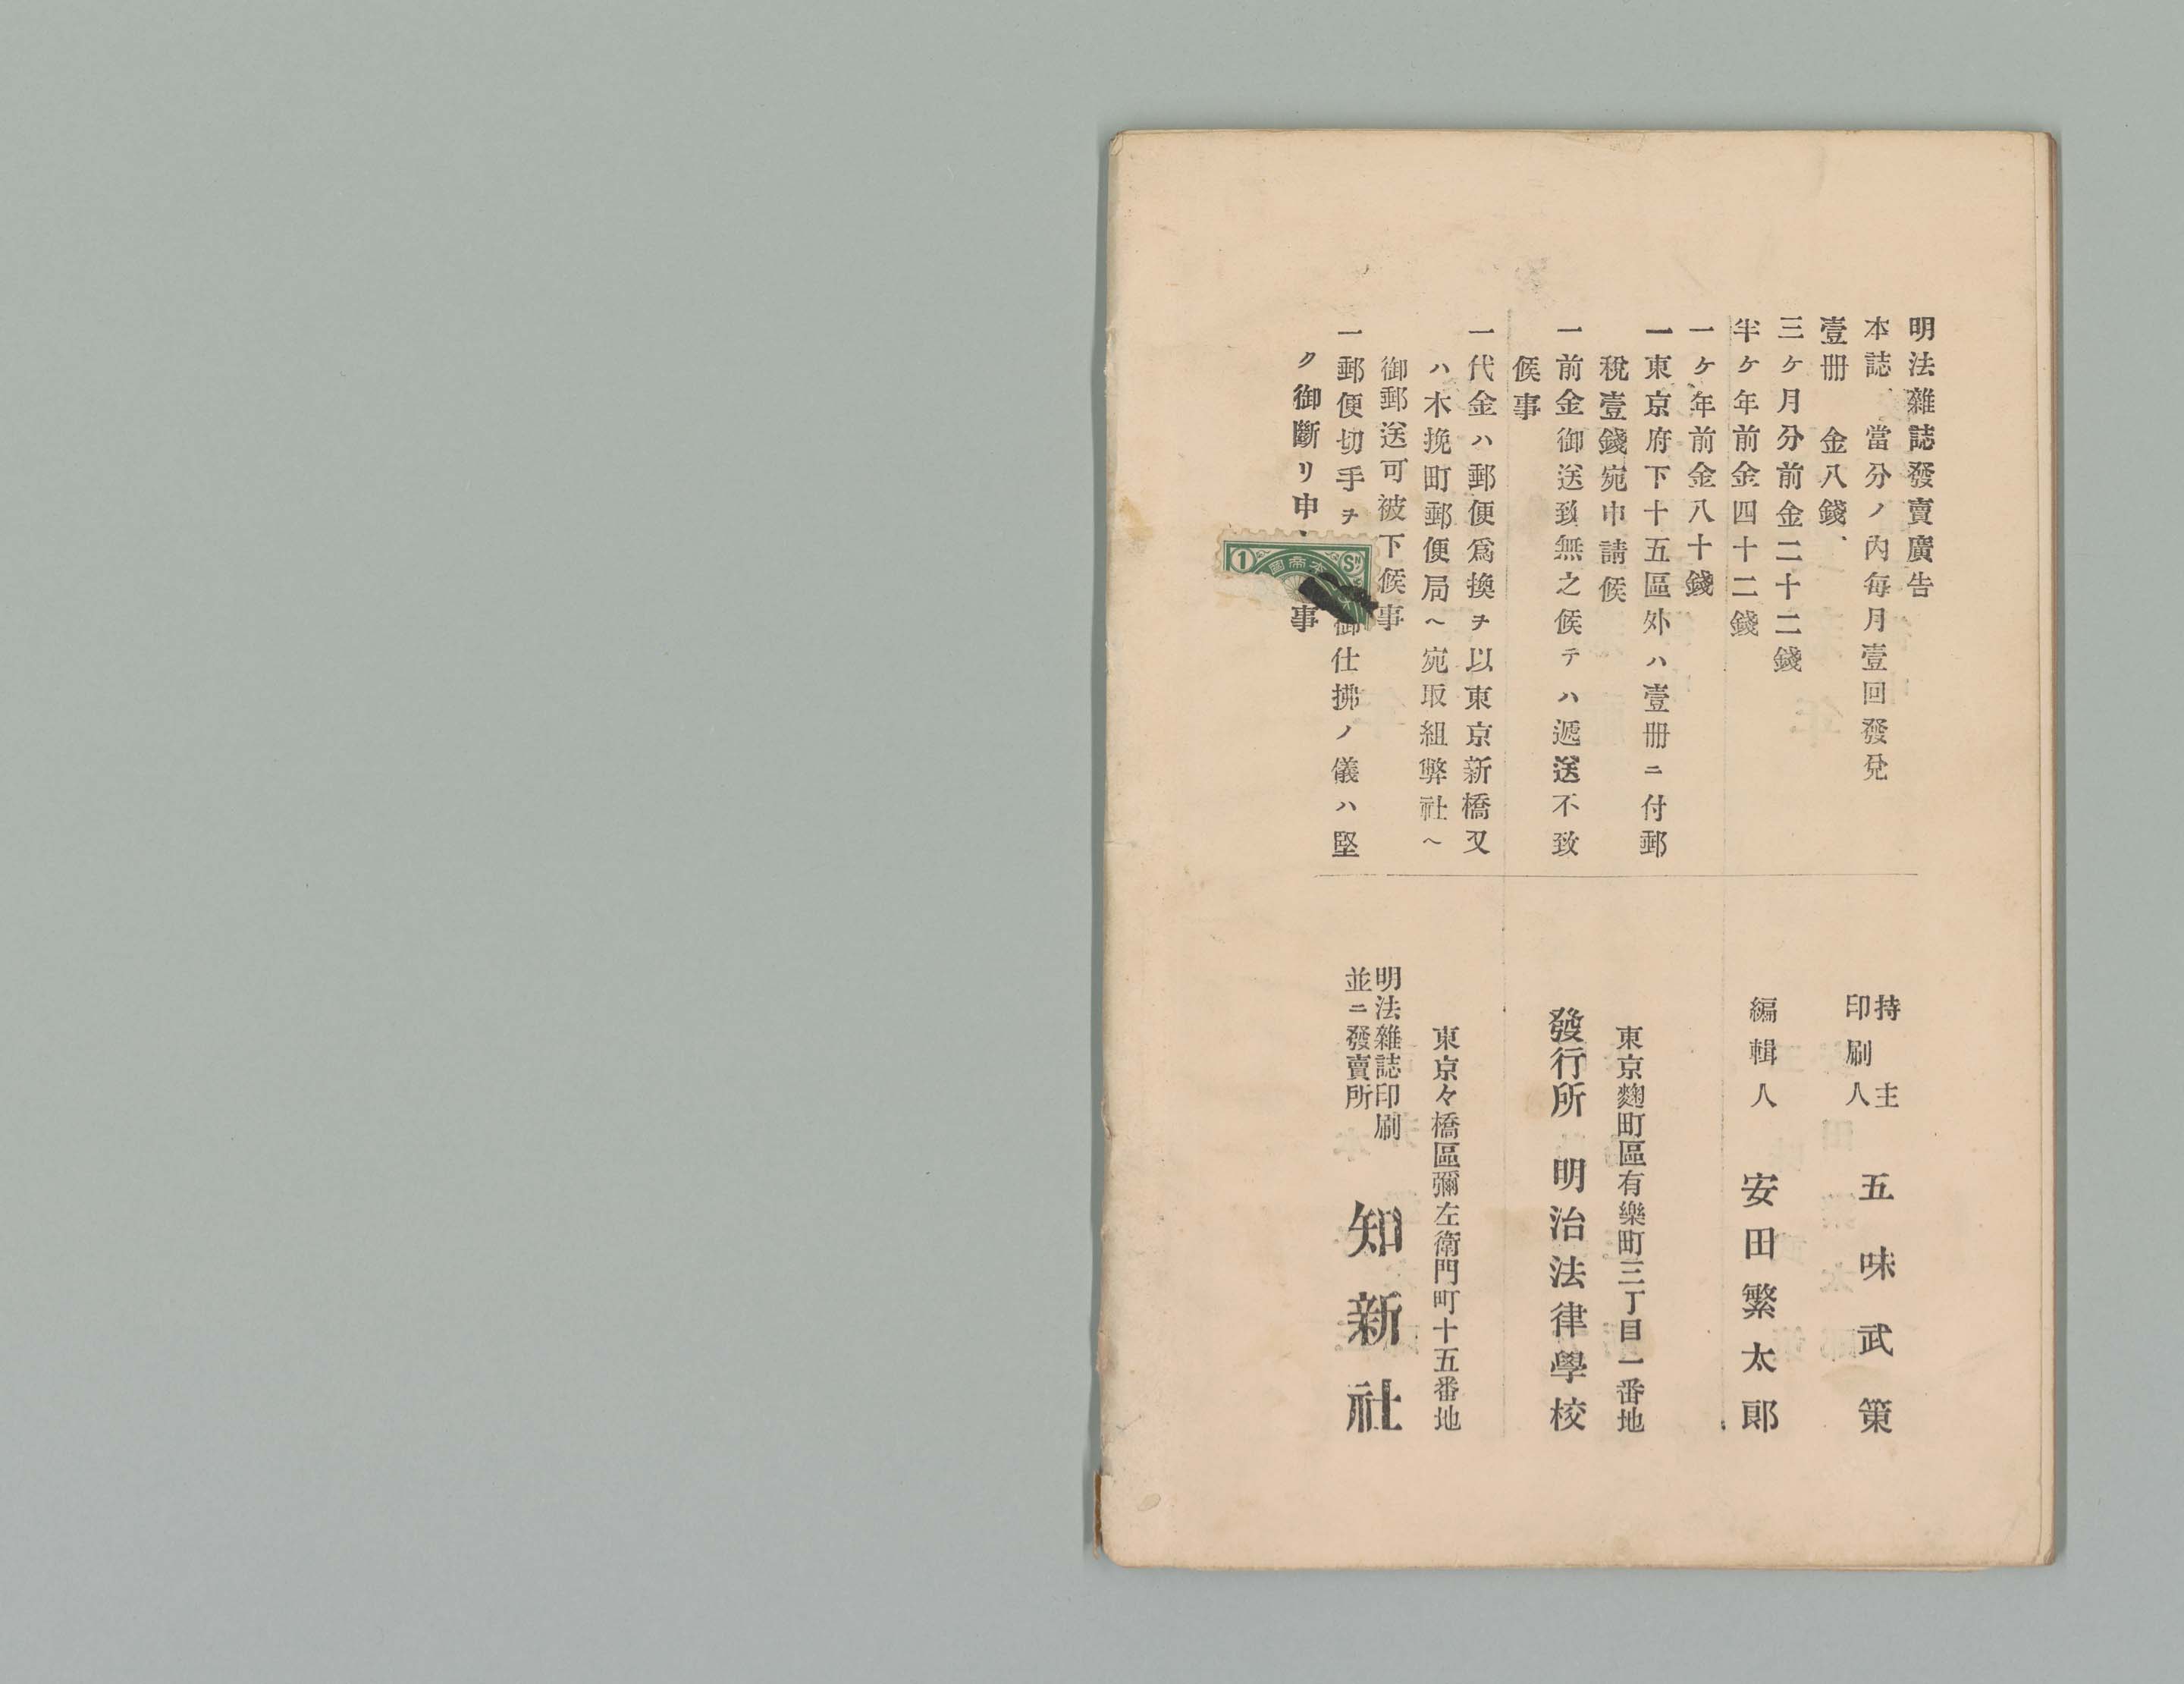 明法雜誌發賣廣告
本誌當分ノ內每月壹回發兌
壹册　金八錢、
三ケ月分前金二十二錢
半ケ年前金四十二錢
一ケ年前金八十錢
一東京府下十五區外ハ壹册ニ付郵
稅壹錢宛申請候
一前金御送致無之候テハ遞送不致
候事
一代金ハ郵便爲換ヲ以東京新橋又
ハ木挽町郵便局ヘ宛取組弊社ヘ
御郵送可被下候事
一郵便切手ヲ御仕拂ノ儀ハ堅
ク御斷リ申事
1
帝國
持主
印刷人
五味武策
編輯人　安田繁太郎
東京麴町區有樂町三丁目一番地
發行所　明治法律學校
東京々橋區彌左衞門町十五番地
明法雜誌印刷
並ニ發賣所
知新社